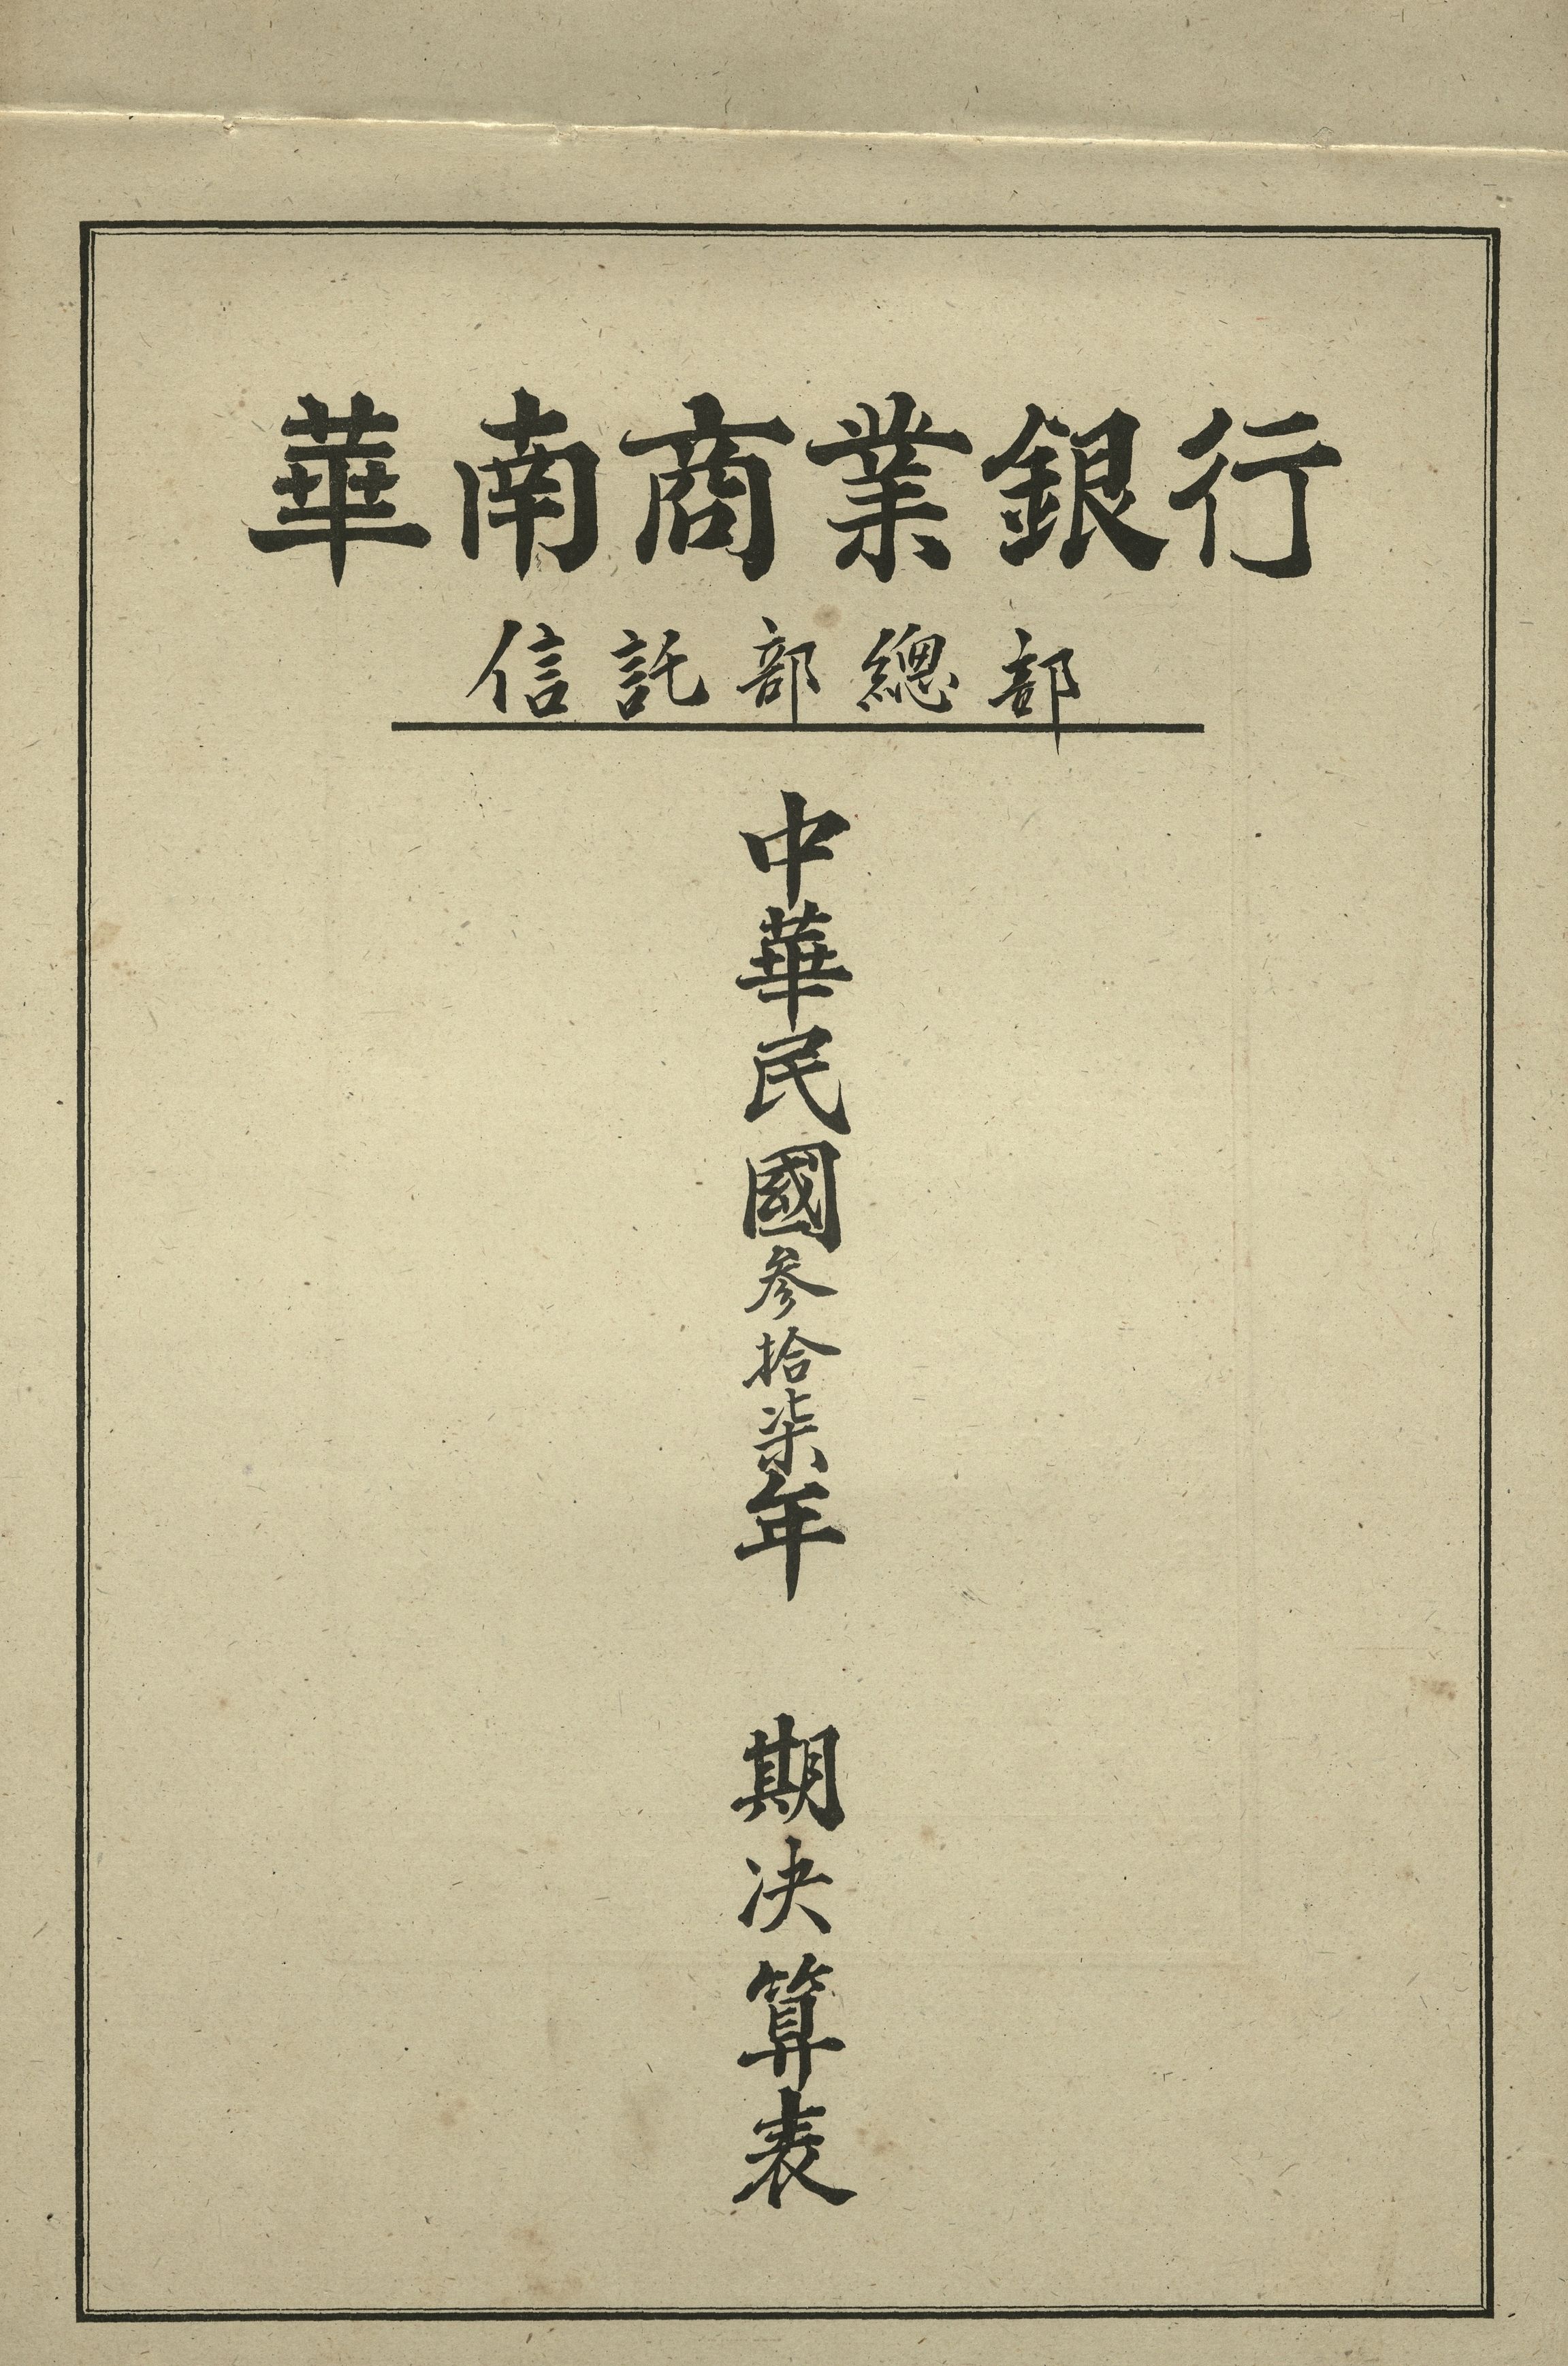 華南商業銀行
信託部總部
中華民國参拾柒年 期决算表